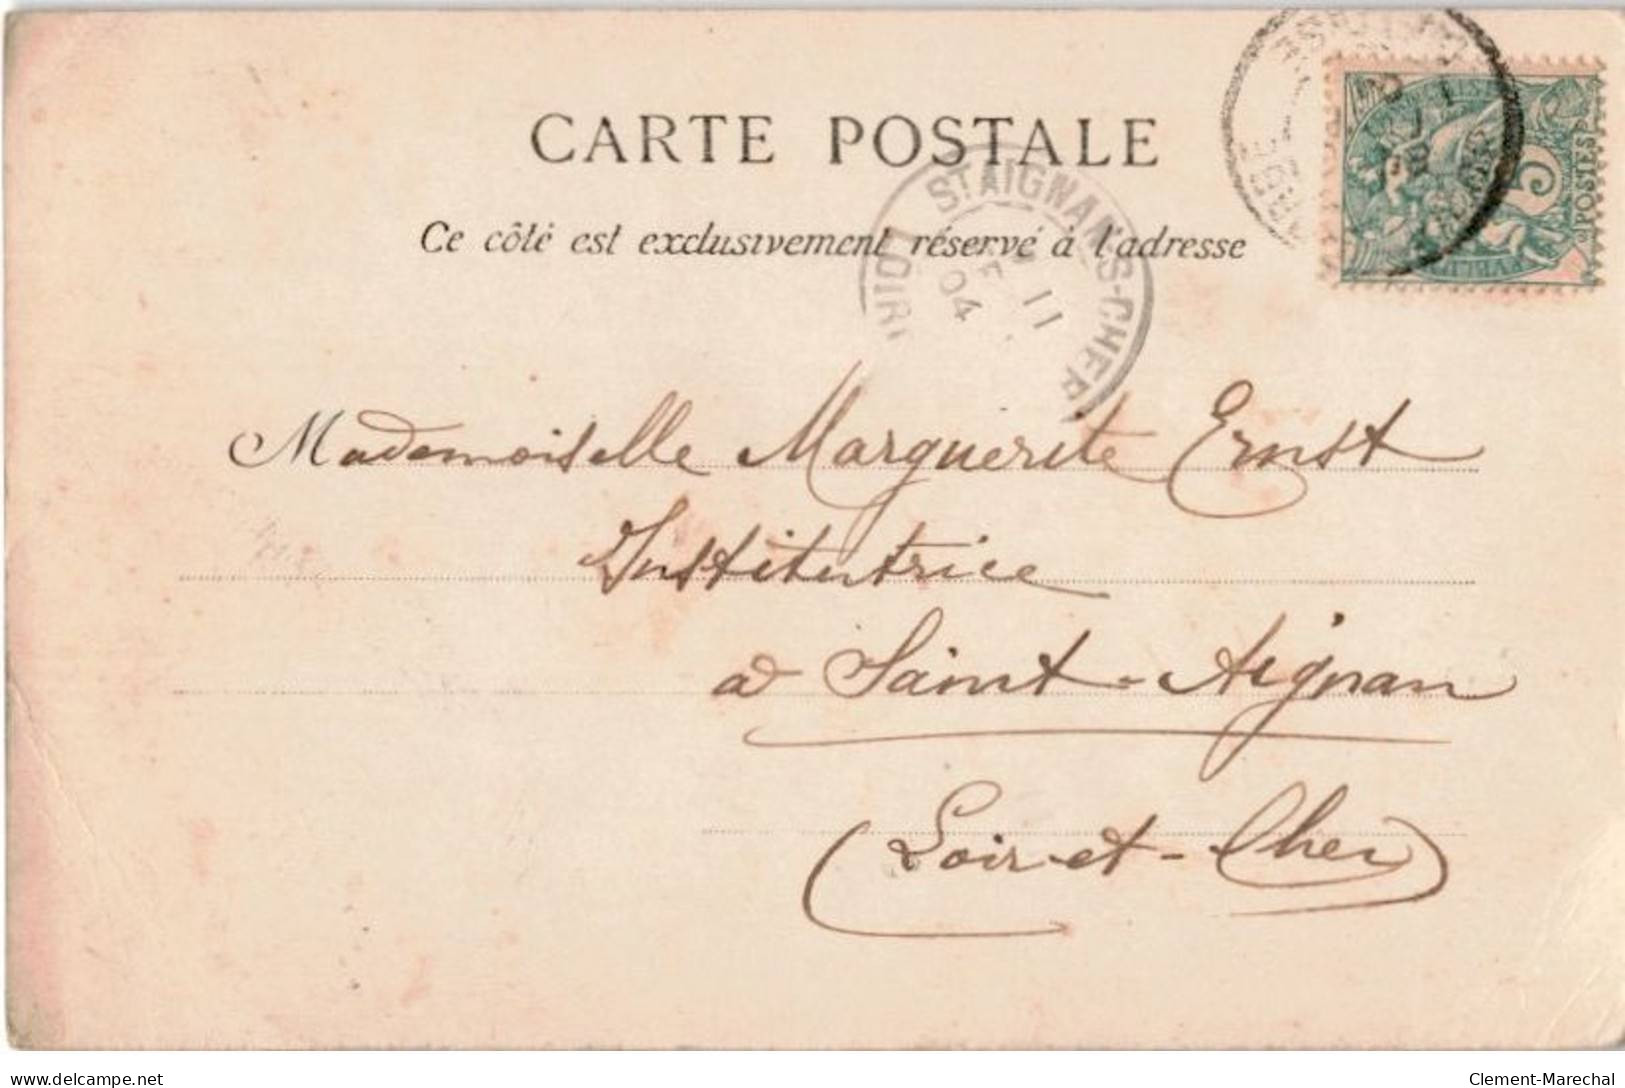 CARTE POSTALE
Ce côté est exclusivement réservé à l'adresse
ST AIGNAN-S-CHER
LOIR
11
04
5
POSTES
Mademoiselle Marguerite Ernst
Institutrice
à Saint-Aignan
(Loir-et-Cher)
delcampe.net
Clement-Marechal